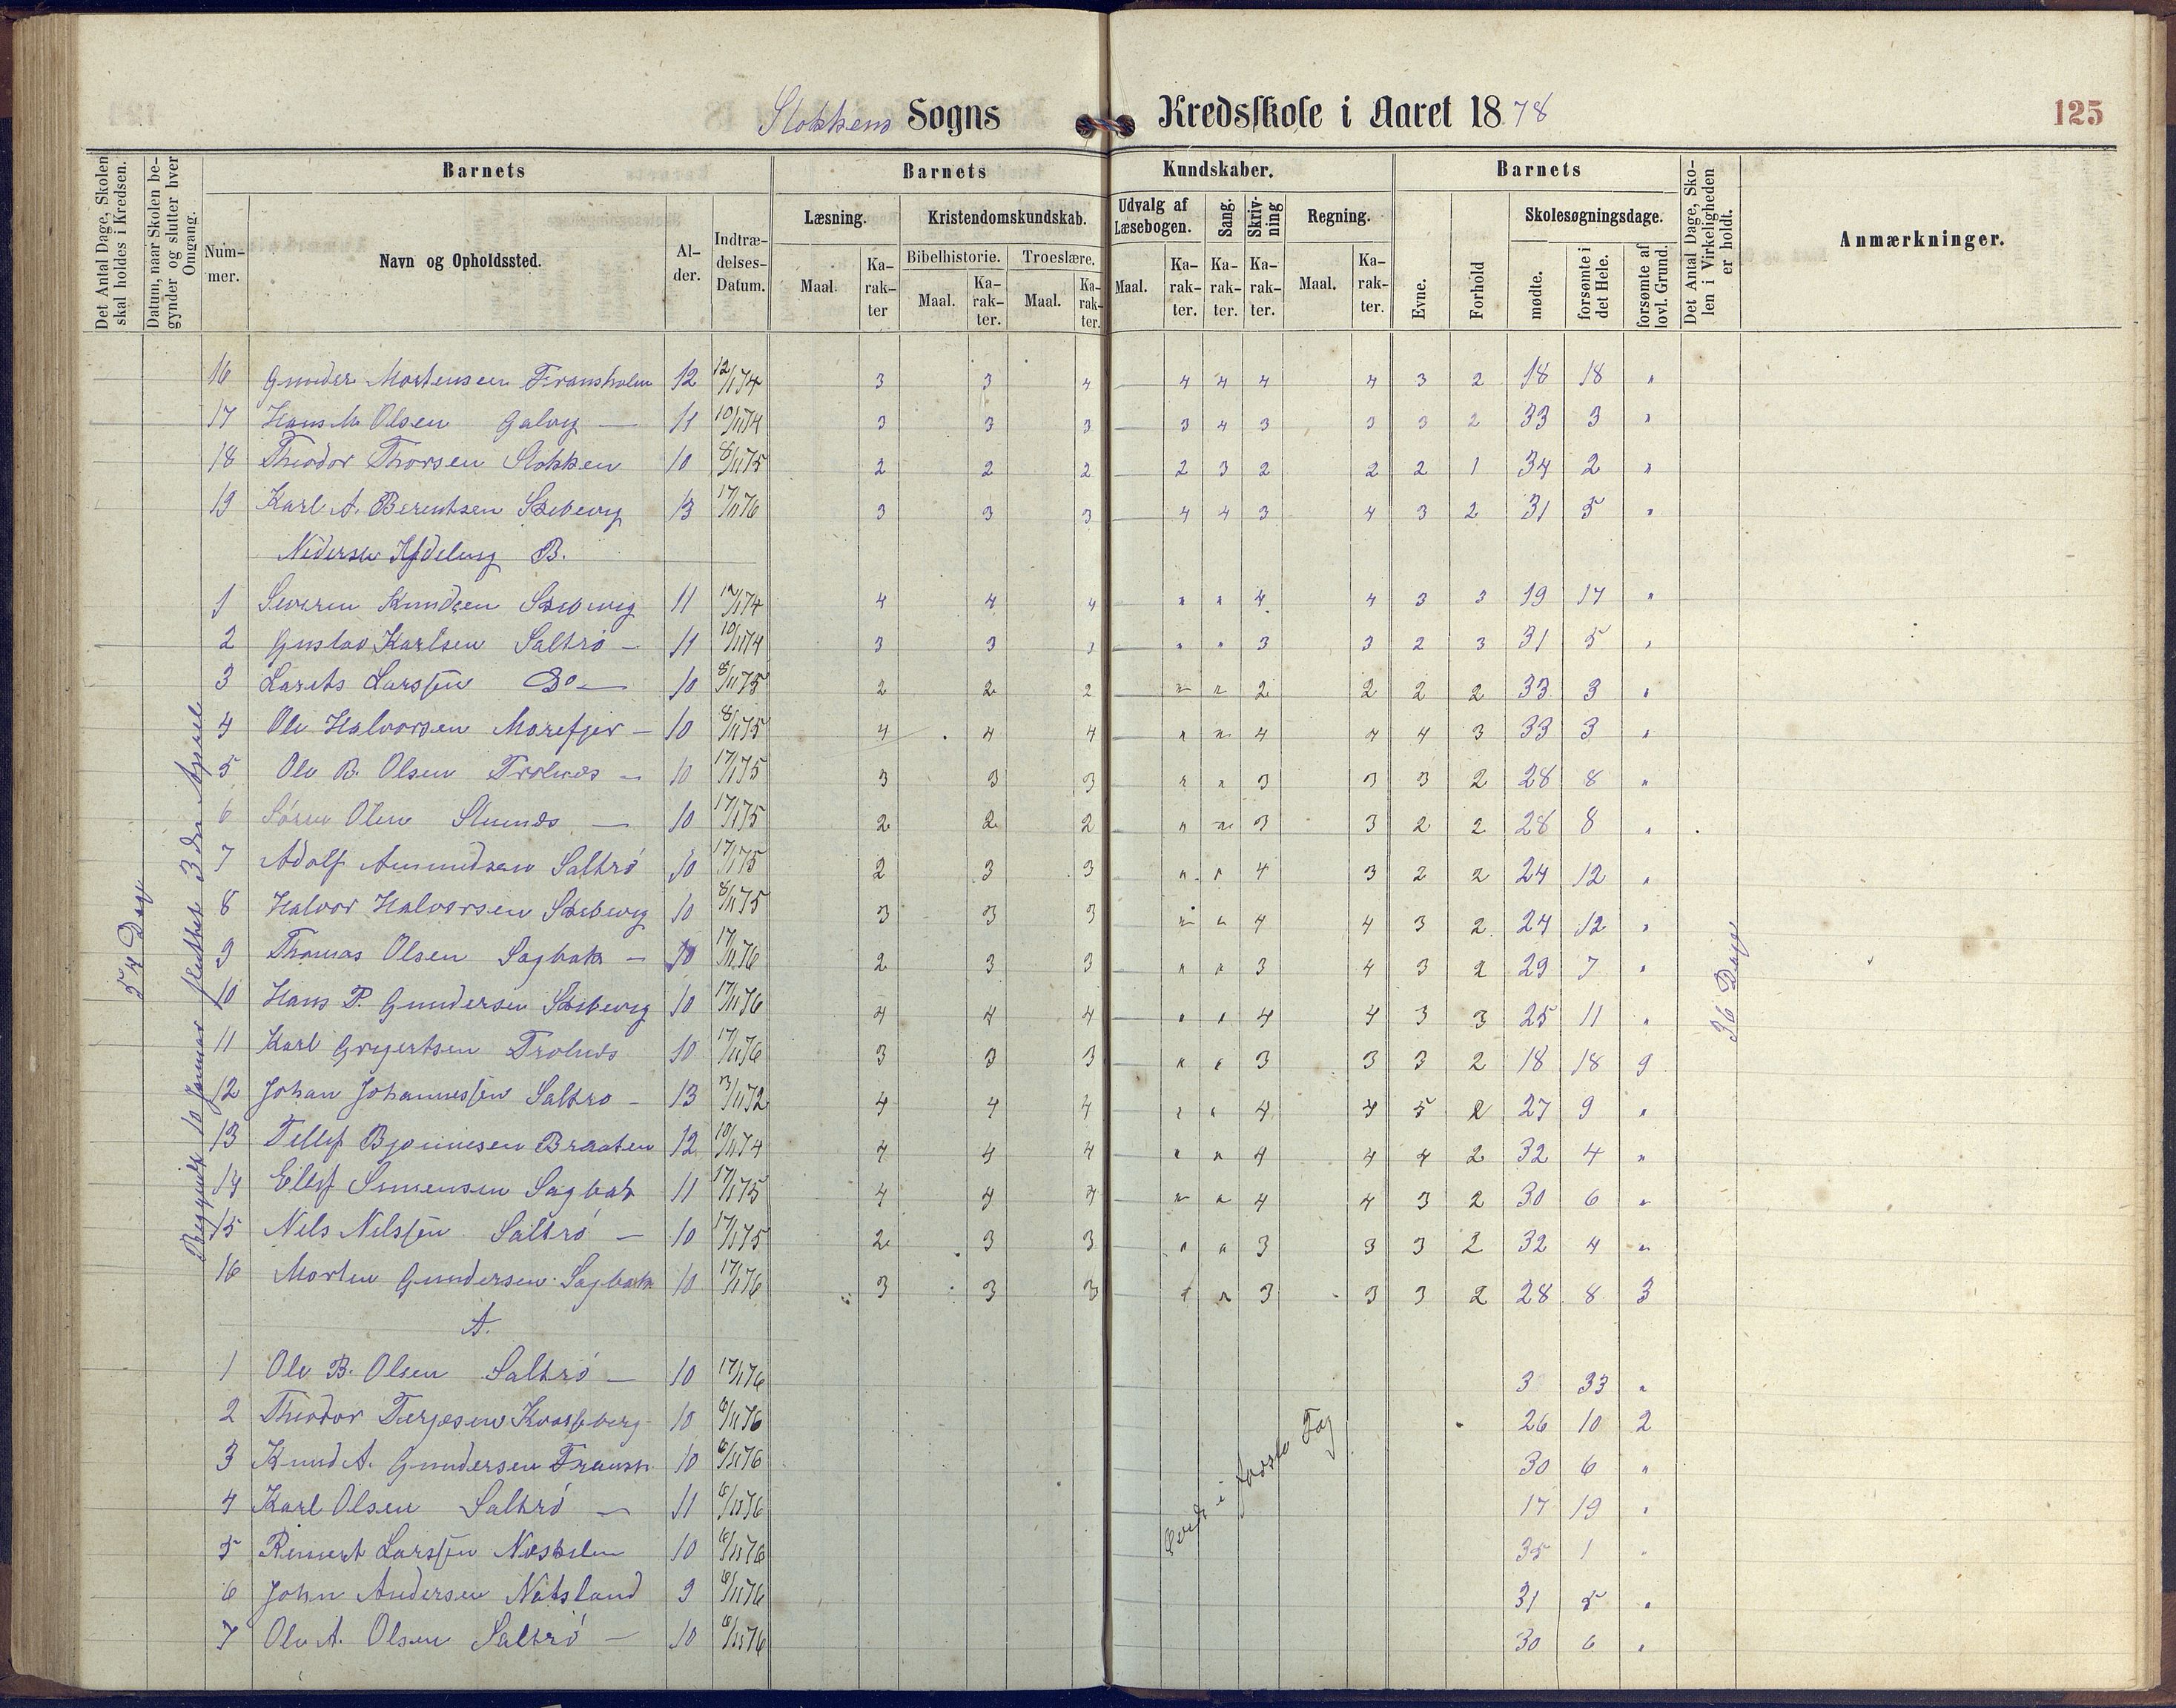 Stokkens Sogns Kredsskole i Aaret 1878
125
Det Antal Dage, Skolen skal holdes i Kredsen.
Datum, naar Skolen begynder og slutter hver Omgang.
Barnets
Nummer.
Navn og Opholdssted.
Alder.
Indtrædelses-Datum.
Barnets Kundskaber.
Læsning.
Maal.
Karakter
Kristendomskundskab.
Bibelhistorie.
Maal.
Karakter.
Troeslære.
Maal.
Karakter.
Udvalg af Læsebogen.
Maal.
Karakter.
Sang.
Karakter.
Skrivning
Karakter.
Regning.
Maal.
Karakter.
Barnets
Evne.
Forhold
Skolesøgningsdage.
mødte.
forsømte i det Hele.
forsømte af lovl. Grund.
Det Antal Dage, Skolen i Virkeligheden er holdt.
Anmærkninger.
54 Dage
Begyndt 10 Januar sluttet 3die April
36 Dage
16 Gunder Mortensen Fransholm 12 12/1174 3 3 4 4 4 4 4 3 2 18 18 "
17 Hans M Olsen Galvg — 11 10/1174 3 3 3 3 4 3 3 3 2 33 3 "
18 Theodor Thorsen Stokken 10 8/1175 2 2 2 2 3 2 2 2 1 34 2 "
19 Karl A. Berentsen 13 17/176 3 3 3 4 4 3 4 3 2 31 5 "
Nederste Afdeling B.
1 Severin Knudsen 11 12/174 4 4 4 " " 4 4 3 3 19 17 "
2 Gustav Karlsen Saltrø — 11 10/1174 3 3 3 " " 3 3 2 3 31 5 "
3 Larsen Do — 10 8/1175 2 2 2 " " 2 2 2 2 33 3 "
4 Ole Halvorsen Morefjer — 10 8/1175 4 4 4 " " 4 4 4 3 33 3 "
5 Ole B. Olsen Trolnes — 10 17/175 3 3 3 " " 3 3 3 2 28 8 "
6 Søren Olsen — 10 17/175 2 2 2 " " 3 3 2 2 28 8 "
7 Adolf Amundsen Saltrø 10 17/175 2 3 3 " " 4 3 2 2 24 12 "
8 Halvor Halvorsen 10 8/1175 3 3 3 " " 4 4 3 2 24 12 "
9 Thomas Olsen Sagbak — 10 17/176 2 3 3 " " 3 4 3 2 29 7 "
10 Hans P. Gundersen 10 17/176 4 4 4 " " 4 4 3 3 25 11 "
11 Karl Gregertsen Trolnes 10 17/176 3 3 3 " " 3 3 3 2 18 18 9
12 Johan Johannessen Saltrø — 13 3/1172 4 4 4 " " 4 4 5 2 27 9 "
13 Tellef Bjønnesen Braaten 12 10/1174 4 4 4 " " 4 4 4 2 32 4 "
14 Ellef Simensen Sagbak 11 17/175 4 4 4 " " 4 4 3 2 30 6 "
15 Nils Nilssen Saltrø — 10 17/175 2 3 3 " " 3 3 3 2 32 4 "
16 Morten Gundersen Sagbak 10 17/176 3 3 3 " " 3 3 3 2 28 8 3
A.
1 Ole B. Olsen Saltrø — 10 17/176 3 33 "
2 Theodor Terjesen 10 6/1176 26 10 2
3 Knud A. Gundersen Fransh 10 6/1176 30 6 "
4 Karl Olsen Saltrø — 11 6/1176 17 19 "
5 Reinert Larssen Neskilen 10 6/1176 35 1 "
6 John Andersen Natsland 9 6/1176 31 5 "
7 Ole A. Olsen Saltrø — 10 6/1176 30 6 "
Øvede i første Fag